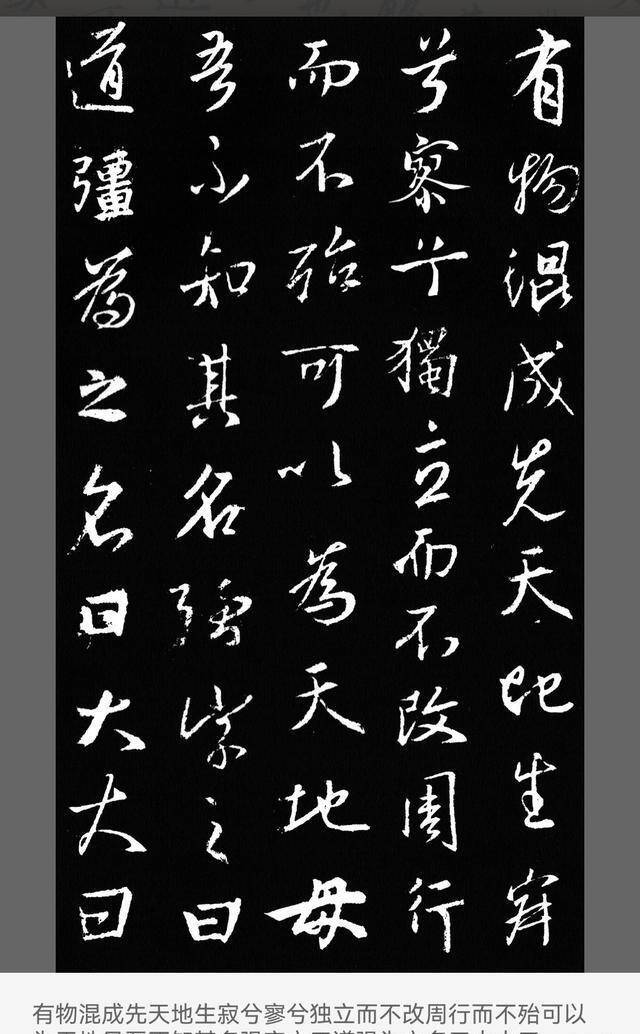 有物混成先天地生寂
兮寥兮獨立而不改周行
而不殆可以為天地母
吾不知其名強字之曰
道彊為之名曰大大曰
有物混成先天地生寂兮寥兮独立而不改周行而不殆可以